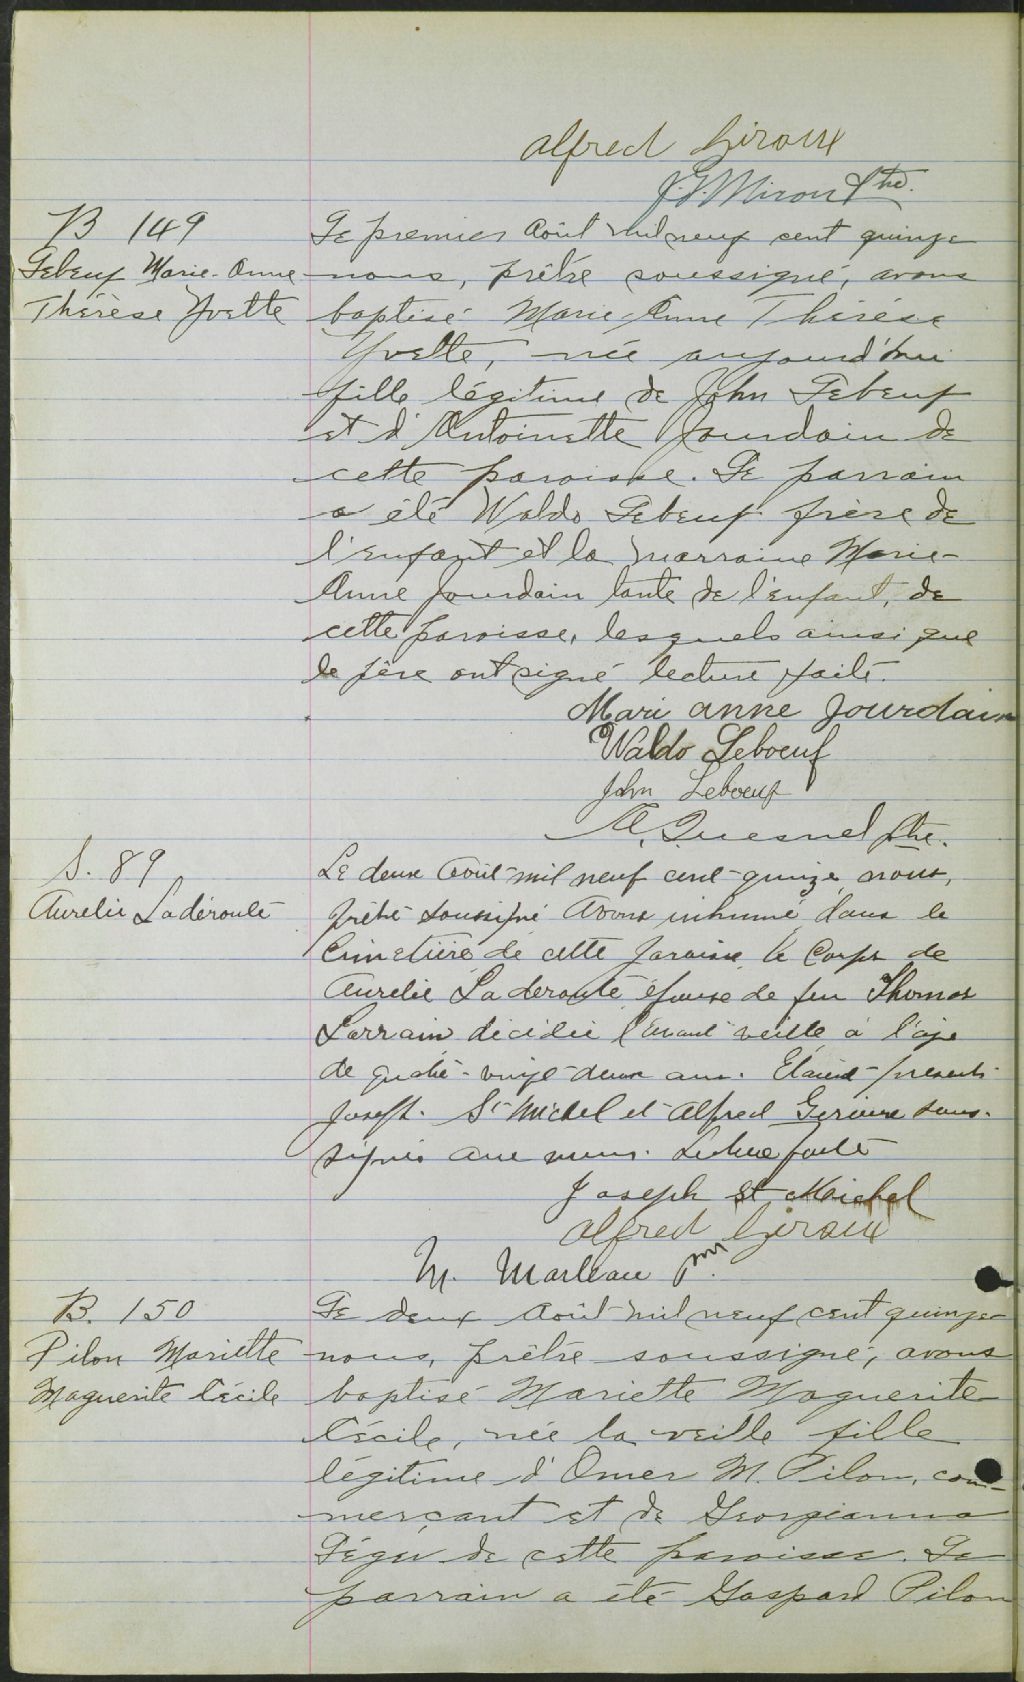 Alfred Giroux
J.G. Miron Ptre.
B 149
Lebeuf Marie-Anne
Thérèse Yvette
Le premier Août mil neuf cent quinze
nous, prêtre soussigné, avons
baptisé Marie-Anne Thérèse
Yvette, née aujourd'hui
fille légitime de John Lebeuf
et d'Antoinette Jourdain de
cette paroisse. Le parrain
a été Waldo Lebeuf frère de
l'enfant et la marraine Marie-
Anne Jourdain tante de l'enfant, de
cette paroisse, lesquels ainsi que
le père ont signé lecture faite.
Mari anne Jourdain
Waldo Leboeuf
John Leboeuf
A. Quesnel Ptre.
S. 89
Aurelie Laderoute
Le deux Août mil neuf cent quinze nous,
prêtre soussigné Avons inhumé dans le
Cimetière de cette paroisse le Corps de
Aurelie Laderoute épouse de feu Thomas
Larrain décédée l'avant veille à l'age
de quatre-vingt-deux ans. Etaient presents
Joseph St Michel et Alfred Giroux sous-
signés avec nous. Lecture faite
Joseph St Michel
Alfred Giroux
M. Marleau
B. 150
Pilon Mariette
Maguerite Cécile
Le deux Août mil neuf cent quinze
nous, prêtre soussigné, avons
baptisé Mariette Maguerite
Cécile, née la veille fille
légitime d'Omer M. Pilon, com-
merçant et de Georgianna
Léger de cette paroisse. Le
parrain a été Gaspard Pilon